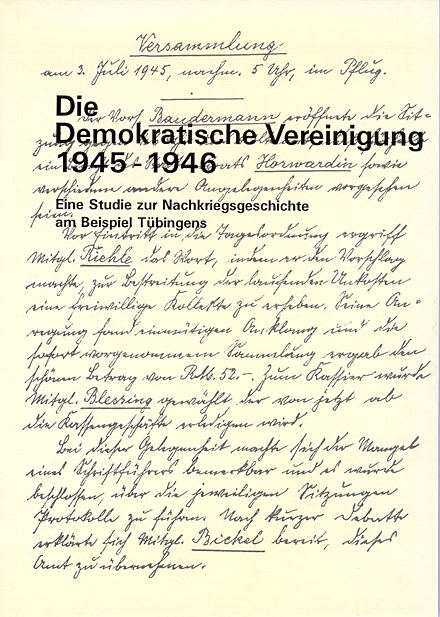 Versammlung
am 3. Juli 1945, nachm. 5 Uhr, im Pflug.
Der Vors. Baudermann eröffnete die Sit-
Die
Demokratische Vereinigung
1945-1946
Horwardin sowie
verschieden andere Angelegenheiten vorgesehen
seien.
Eine Studie zur Nachkriegsgeschichte
am Beispiel Tübingens
Vor Eintritt in die Tagesordnung ergriff
Mitgl. Riehle das Wort, indem er den Vorschlag
machte, zur Bestreitung der laufenden Unkosten
eine freiwillige Kollekte zu erheben. Seine An-
regung fand einmütigen Anklang und die
sofort vorgenommene Sammlung ergab den
schönen Betrag von Rmk. 52.-. Zum Kassier wurde
Mitgl. Blessing gewählt der von jetzt ab
die Kassengeschäfte erledigen wird.
Bei dieser Gelegenheit machte sich der Mangel
eines Schriftführers bemerkbar und es wurde
beschlossen, über die jeweiligen Sitzungen
Protokolle zu führen. Nach kurzer Debatte
erklärte sich Mitgl. Bickel bereit, dieses
Amt zu übernehmen.